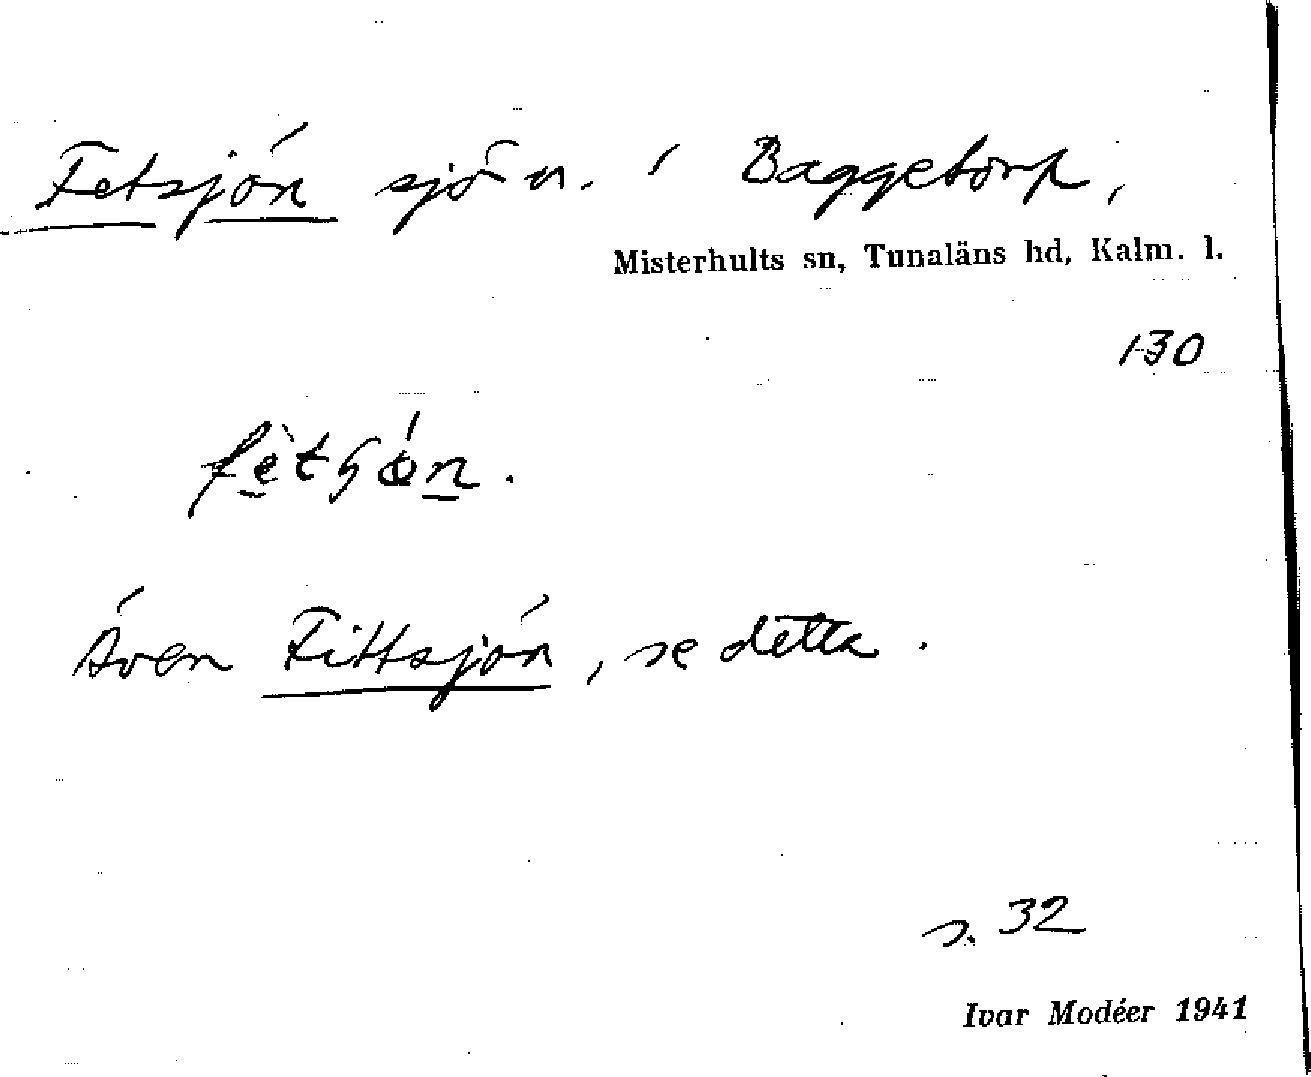 Fetsjön sjö n. i Baggetorp,
Misterhults sn, Tunaläns hd, Kalm. l.
130
Även Fittsjön, se detta.
s. 32
Ivar Modéer 1941